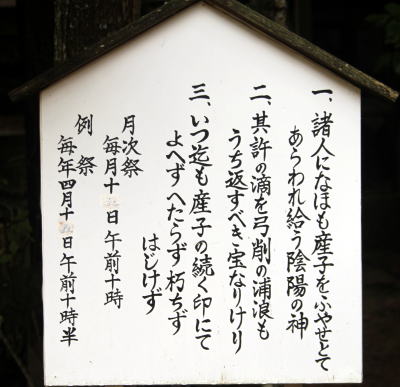 一、諸人になほも産子をふやせとて
あらわれ給う陰陽の神
二、其許の滴を弓削の浦浪も
うち返すべき宝なりけり
三、いつ迄も産子の続く印にて
よへずへたらず朽ちず
はじけず
月次祭
毎月十 日午前十時
例祭
毎年四月十 日午前十時半